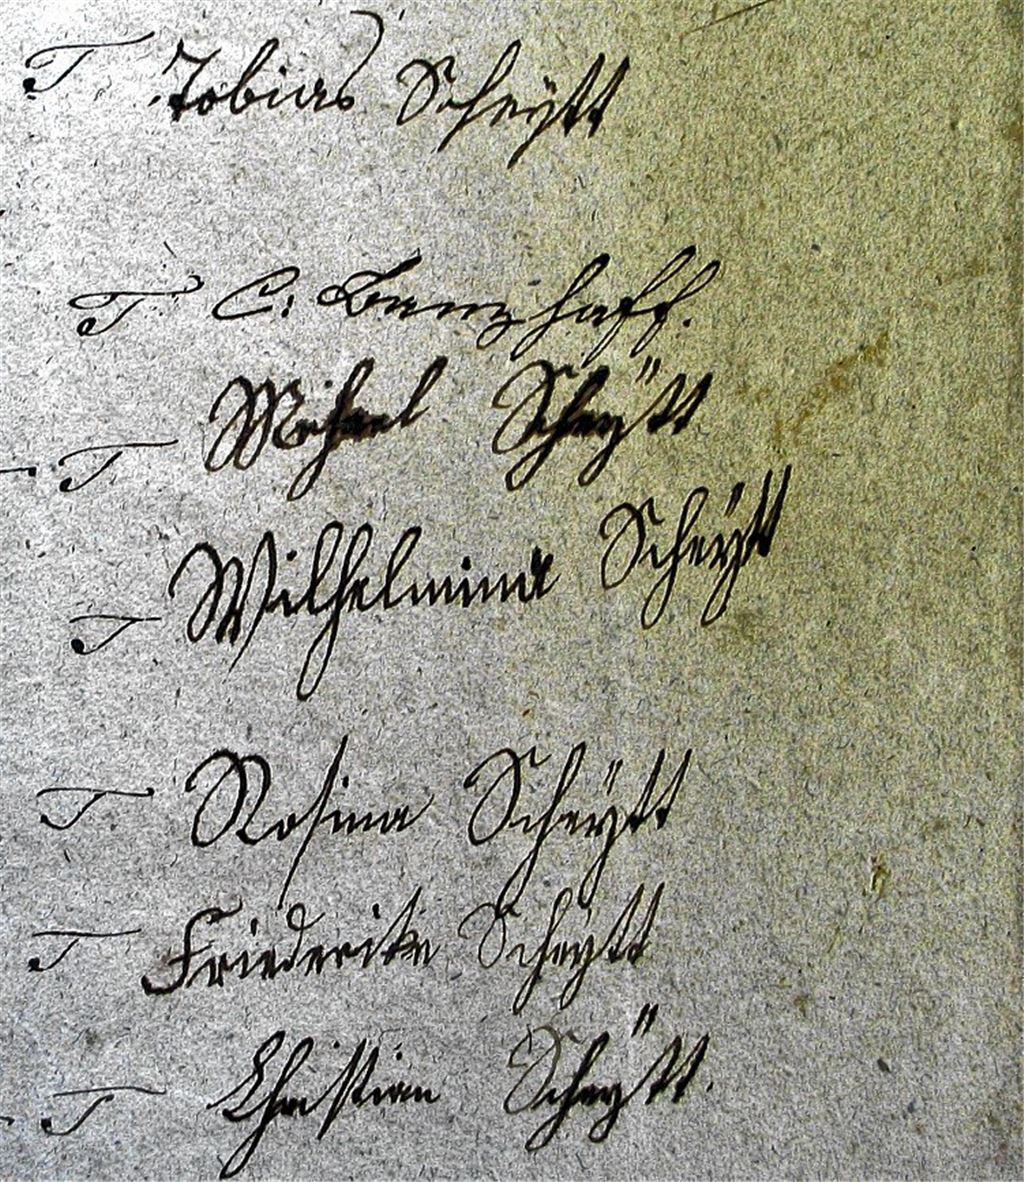 T Tobias Scheytt
T C. Banzhaff.
T Michael Scheÿtt
T Wilhelmina Scheÿtt
T Rosina Scheÿtt
T Friederike Scheÿtt
T Christian Scheÿtt.